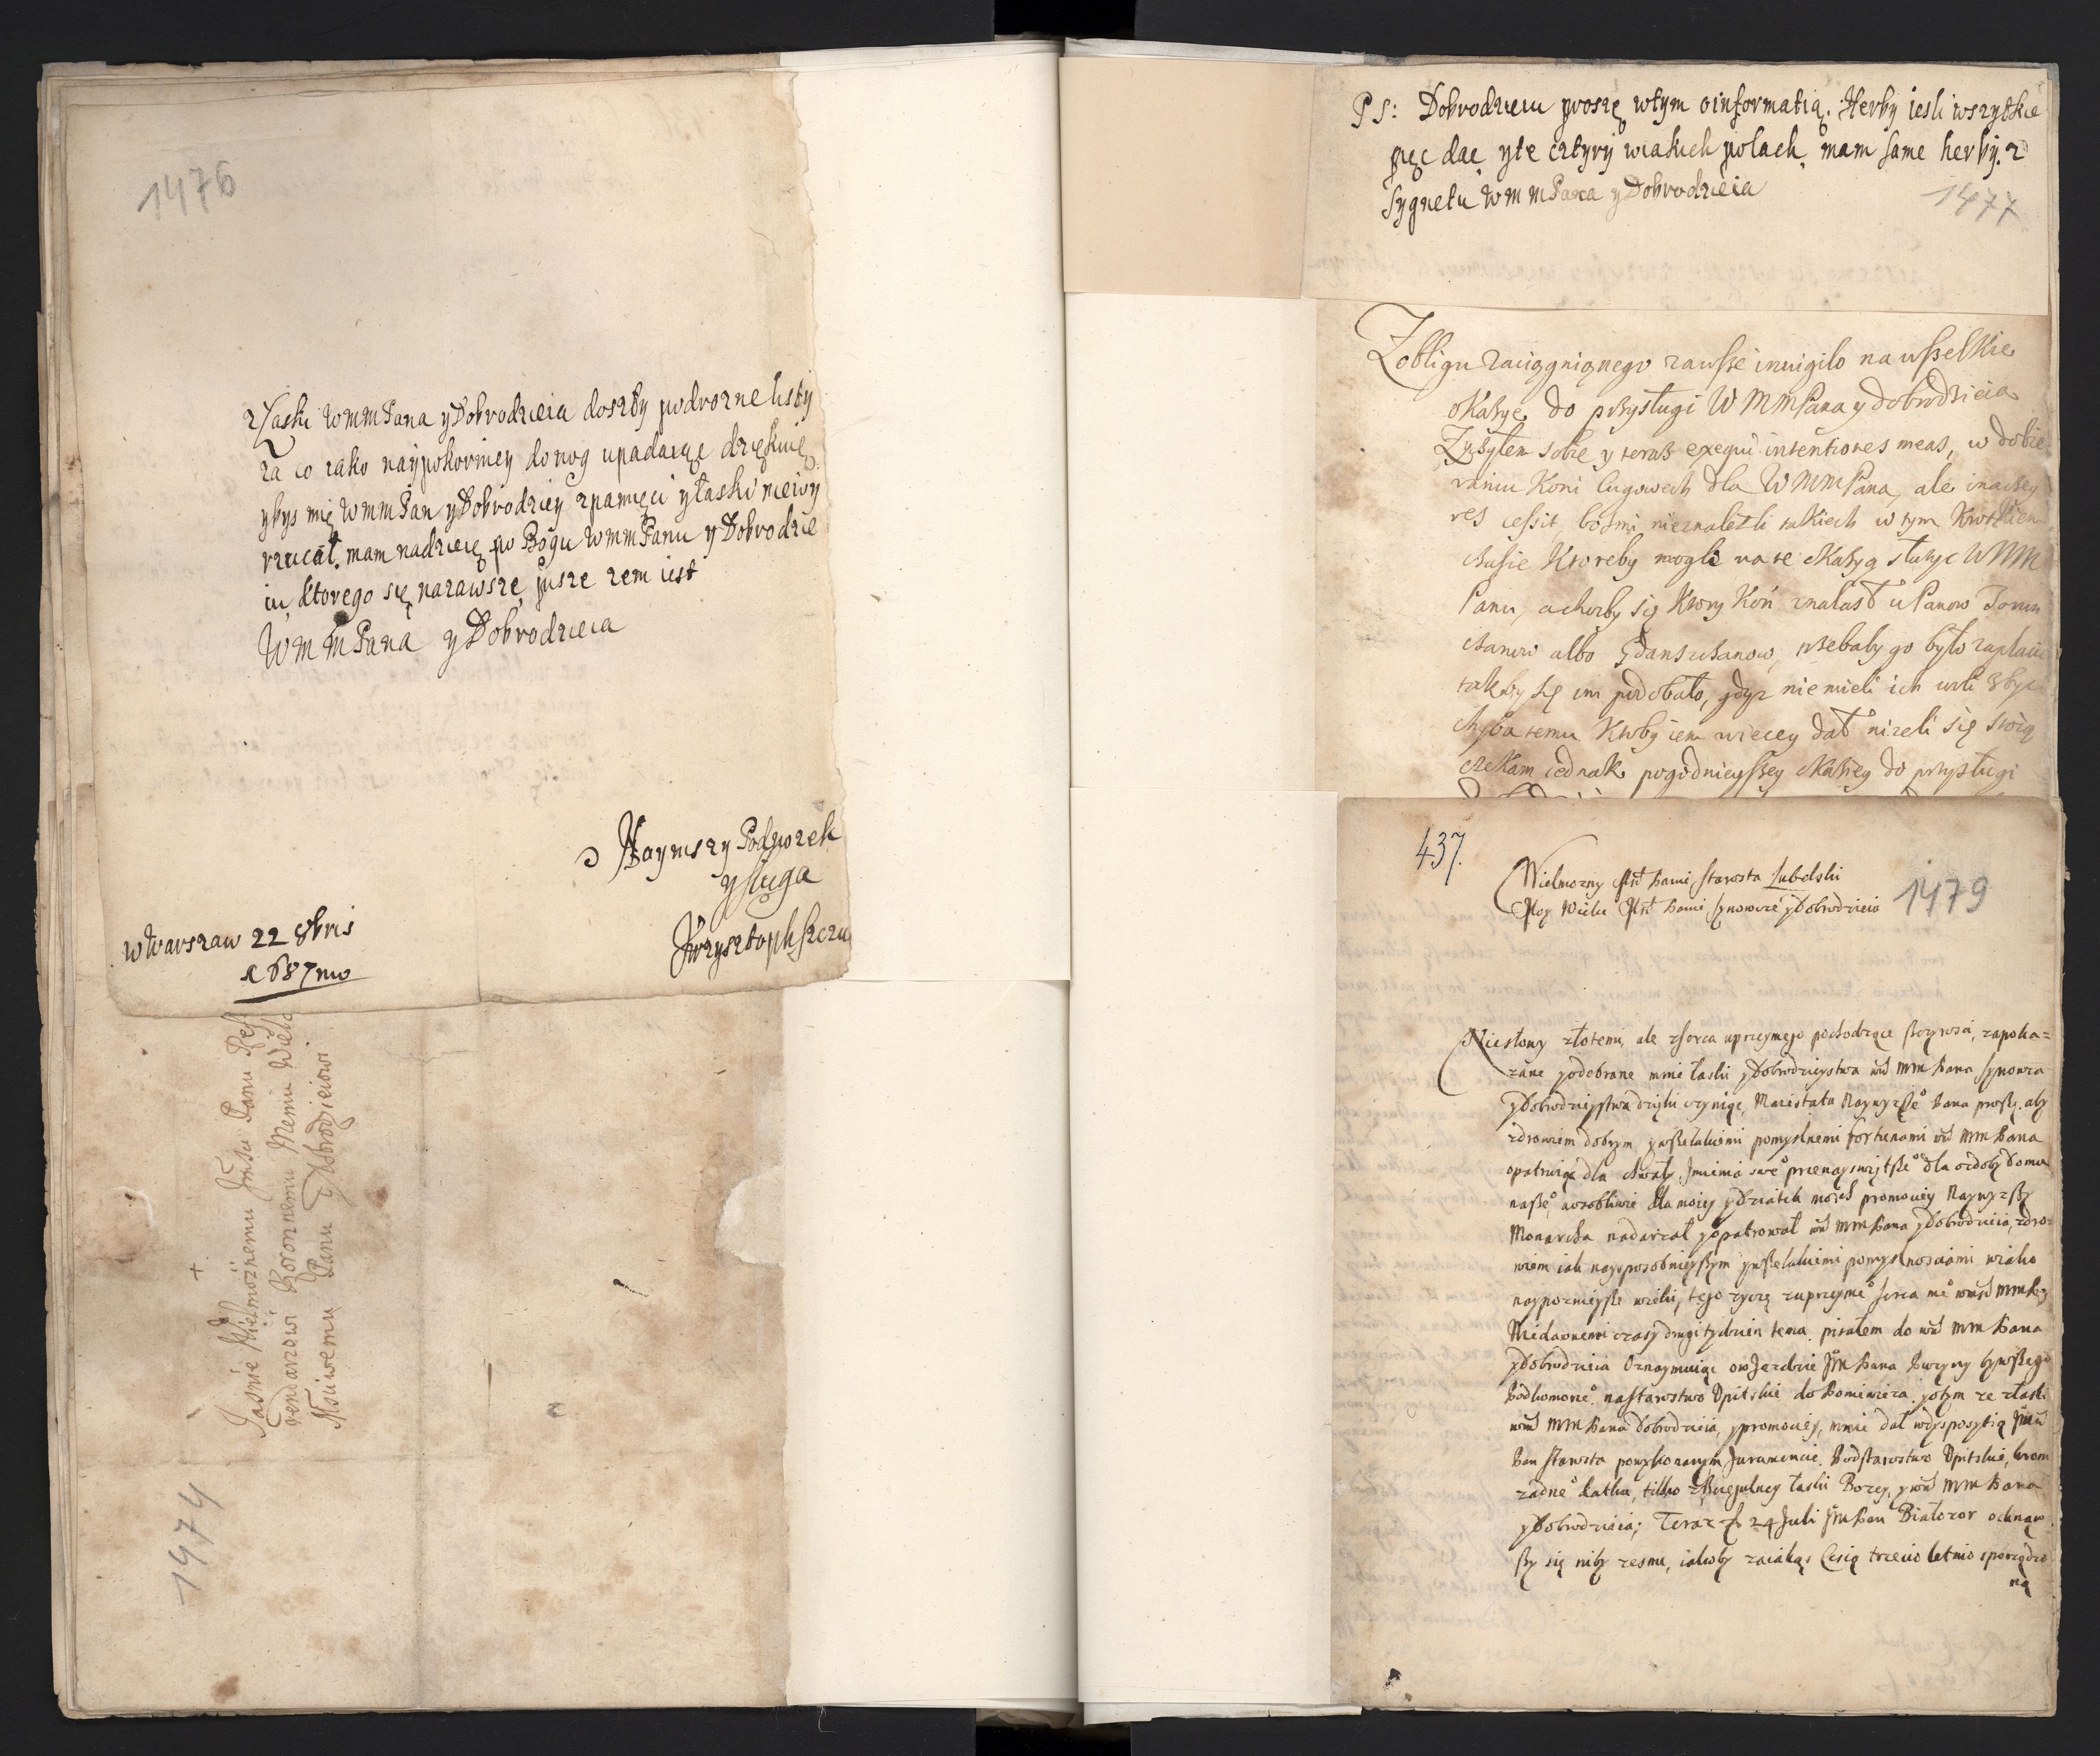 1476
z Łaski WMMPana y Dobrodzieia doszły podrozne listy
za co iako naypokorniey do nog upadaiąc dziękuię
ybys mię WMMPan y Dobrodziey zpamięci yłaski niewy
rzucał. mam nadzieię po Bogu WMMPanu y Dobrodzie
iu, ktorego się nazawsze pisze zem iest
WMMPana y Dobrodzieia
Naynizszy Podnozek
y sługa
Krzysztoph Szczu
w Warszaw 22 8bris
1687mo
Jasnie Wielmożnemu Panu
rendarzowi Koronnemu Memu Wielce
Msciwemu Panu y Dobrodzieiowi
1474
PS: Dobrodzieiu proszę wtym oinformatią. Herby iesli wszytkie
pięc dac yte cztyry wiakich polach, mam same herby z
Sygnetu WMMPana y Dobrodzieia
1477
Zobligu zaciągnionego zawsze invigilo na wszelkie
okazye do przysługi WMMPana y dobrodzieia
Zyczyłem sobie y teraz exequi intentiones meas, w dobie
raniu Koni cugowech dla WMMPana, ale inaczey
res cessit, bosmi nieznalezli takiech w tym Krotkiem
czasie Ktoreby mogli na te okazyą słuzyc WMM
Panu, a chocby się Ktory Koń znalasł u Panow Torun
czanow albo Gdansczanow, trzebaby go było zaplacic
iakby się im podobało, gdyz niemieli ich woli zbyc
chyba temu Ktoby iem wiecey dał nizeli się stoią
czekam iednak pogodnieyszey okaziey do przysługi
437.
Wielmozny Mści Panie Starosta Lubelski
Moy Wielce Mści Panie Synowcze y Dobrodzieiu
1479
Niesłowy złotemi, ale zserca uprzeymego pochodzące zapoka=
zane y odebrane mnie łaski y Dobrodzieystwa MMPana Synowca
y Dobrodzieystwa dzięki czyniąc, Maiestata Naywyzsze Pana proszę, aby
zdrowiem dobrym y wszelakiemi pomyslnemi fortunami MMPana
opatruiąc dla chwały Imienia swe przenayswiętsze dla ozdoby Domu
nasze, aosobliwie dla moiey y Dziatek moich promociey Naywyzszy
Monarcha nadarzał y opatrował MMPana y Dobrodzieia, zdro=
wiem iak naysposobnieyszym y wszelakiemi pomyslnosciami wiako
naypoznieysze wieki, tego zyczę zuprzeyme serca me MMP
Niedawnemi czasy drugi tydzien temu pisałem do MMPana
y Dobrodzieia Oznaymuiąc o wJezdzie Pana
Podkomorze na starostwo Upitskie do Poniewieza, yotym ze złaski
MMPana Dobrodzieia, ypromociey, mnie dał wdyspositią
Pan Starosta powykonanym Juramencie, Podstarostwo Upitskie, krom
zadne datku, tilko zsczegulney łaski Bozey, y MMPana
y Dobrodzieia; Teraz 24 Juli Pan Białozor ocknąw
szy się niby zesnu, iakoby zaiakąs Cesią trzecio letnio sporządzo
ną